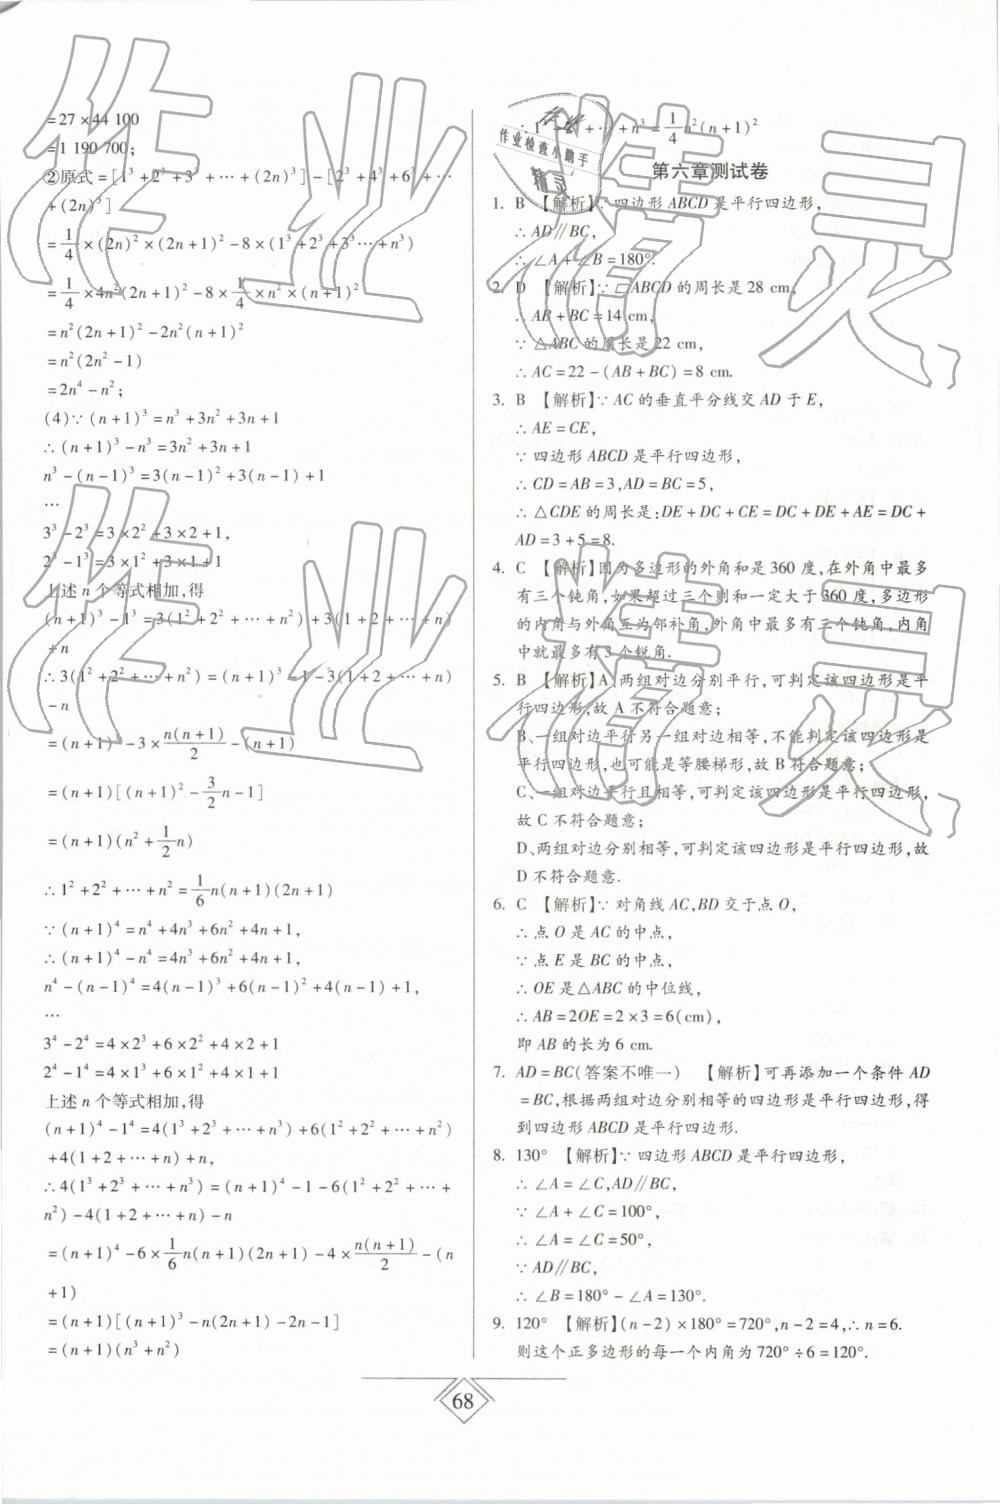 =27×44 100
=1 190 700;
②原式=[1³+2³+3³+…+(2n)³]-[2³+4³+6³+…
+(2n)³]
=1/4×(2n)²×(2n+1)²-8×(1³+2³+3³…+n³)
=1/4×4n²(2n+1)²-8×1/4×n²×(n+1)²
=n²(2n+1)²-2n²(n+1)²
=n²(2n²-1)
=2n⁴-n²;
(4)∵(n+1)³=n³+3n²+3n+1
∴(n+1)³-n³=3n²+3n+1
n³-(n-1)³=3(n-1)²+3(n-1)+1
…
3³-2³=3×2²+3×2+1,
2³-1³=3×1²+3×1+1
上述n个等式相加,得
(n+1)³-1³=3(1²+2²+…+n²)+3(1+2+…+n)
+n
∴3(1²+2²+…+n²)=(n+1)³-1-3(1+2+…+n)
-n
=(n+1)³-3×n(n+1)/2-(n+1)
=(n+1)[(n+1)²-3/2n-1]
=(n+1)(n²+1/2n)
∴1²+2²+…+n²=1/6n(n+1)(2n+1)
∵(n+1)⁴=n⁴+4n³+6n²+4n+1,
∴(n+1)⁴-n⁴=4n³+6n²+4n+1,
n⁴-(n-1)⁴=4(n-1)³+6(n-1)²+4(n-1)+1,
…
3⁴-2⁴=4×2³+6×2²+4×2+1
2⁴-1⁴=4×1³+6×1²+4×1+1
上述n个等式相加,得
(n+1)⁴-1⁴=4(1³+2³+…+n³)+6(1²+2²+…+n²)
+4(1+2+…+n)+n,
∴4(1³+2³+…+n³)=(n+1)⁴-1-6(1²+2²+…+
n²)-4(1+2+…+n)-n
=(n+1)⁴-6×1/6n(n+1)(2n+1)-4×n(n+1)/2-(n
+1)
=(n+1)[(n+1)³-n(2n+1)-2n-1]
=(n+1)(n³+n²)
∴1³+2³+…+n³=1/4n²(n+1)²
第六章测试卷
1. B 【解析】∵四边形ABCD是平行四边形,
∴AD∥BC,
∴∠A+∠B=180°.
2. D 【解析】∵▱ABCD的周长是28 cm,
∴AB+BC=14 cm,
∵△ABC的周长是22 cm,
∴AC=22-(AB+BC)=8 cm.
3. B 【解析】∵AC的垂直平分线交AD于E,
∴AE=CE,
∵四边形ABCD是平行四边形,
∴CD=AB=3,AD=BC=5,
∴△CDE的周长是:DE+DC+CE=DC+DE+AE=DC+
AD=3+5=8.
4. C 【解析】因为多边形的外角和是360度,在外角中最多
有三个钝角,如果超过三个则和一定大于360度,多边形
的内角与外角互为邻补角,外角中最多有三个钝角,内角
中就最多有3个锐角.
5. B 【解析】A、两组对边分别平行,可判定该四边形是平
行四边形,故A不符合题意;
B、一组对边平行另一组对边相等,不能判定该四边形是
平行四边形,也可能是等腰梯形,故B符合题意;
C、一组对边平行且相等,可判定该四边形是平行四边形,
故C不符合题意;
D、两组对边分别相等,可判定该四边形是平行四边形,故
D不符合题意.
6. C 【解析】∵对角线AC,BD交于点O,
∴点O是AC的中点,
∵点E是BC的中点,
∴OE是△ABC的中位线,
∴AB=2OE=2×3=6(cm),
即AB的长为6 cm.
7. AD=BC(答案不唯一) 【解析】可再添加一个条件AD
=BC,根据两组对边分别相等的四边形是平行四边形,得
到四边形ABCD是平行四边形.
8. 130° 【解析】∵四边形ABCD是平行四边形,
∴∠A=∠C,AD∥BC,
∵∠A+∠C=100°,
∴∠A=∠C=50°,
∵AD∥BC,
∴∠B=180°-∠A=130°.
9. 120° 【解析】(n-2)×180°=720°,n-2=4,∴n=6.
则这个正多边形的每一个内角为720°÷6=120°.
68
作业精灵
作业精灵
作业检查小助手
精灵